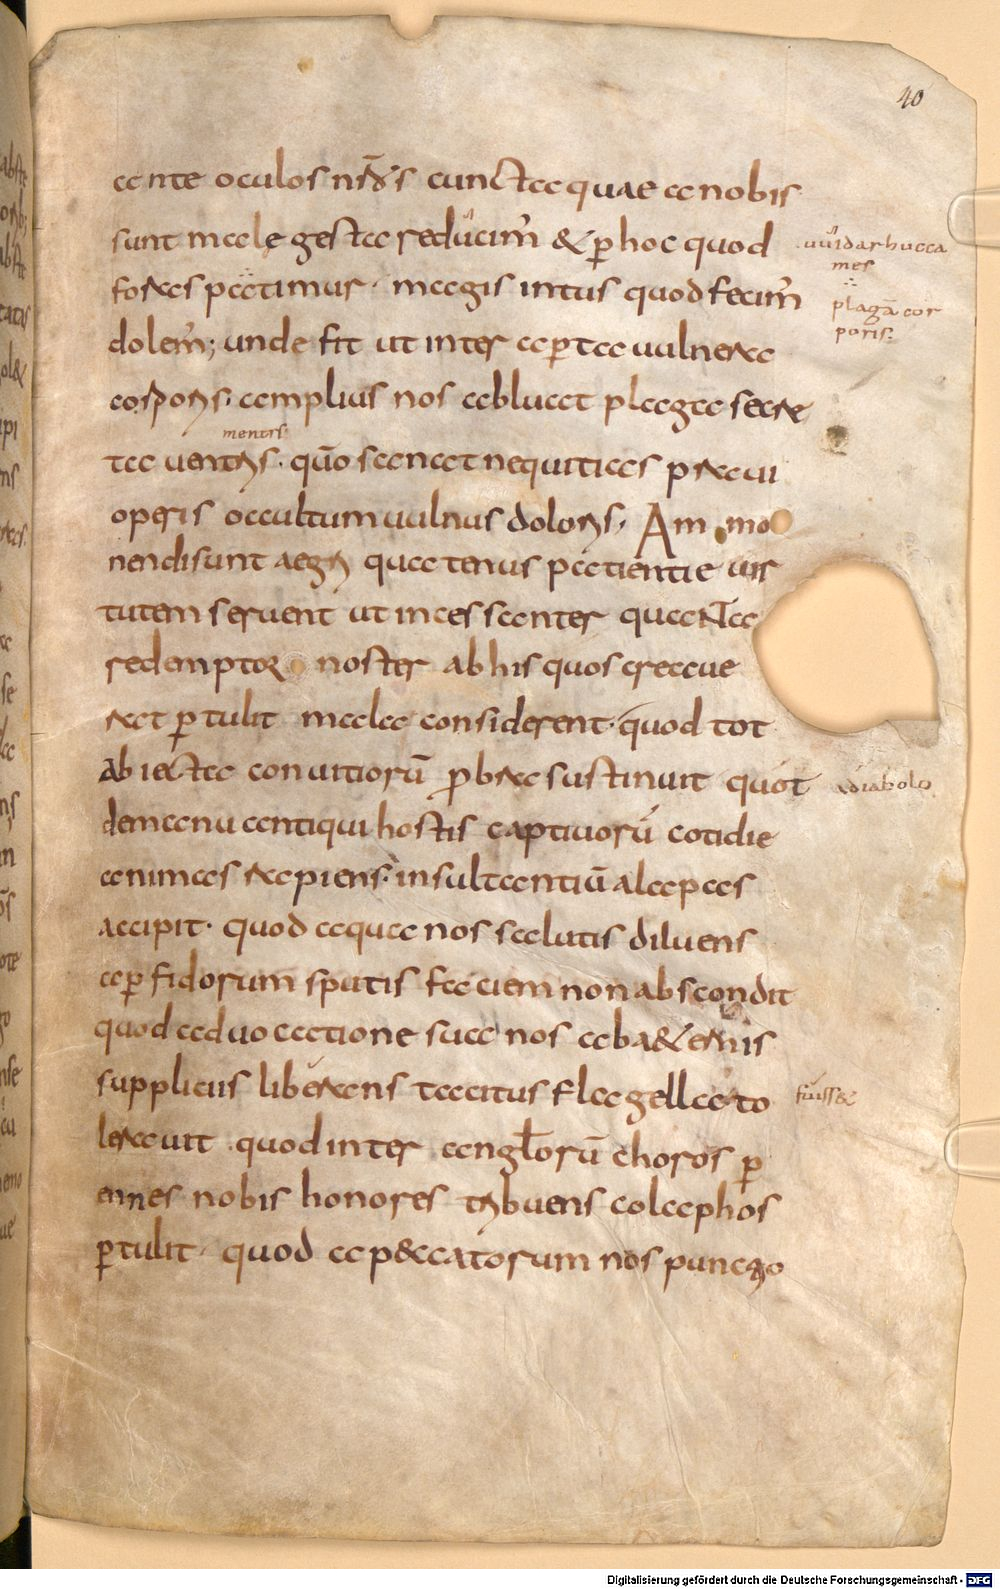 40
ante oculos nr̄os cuncta quae a nobis
sunt male gesta reducim̄ & ꝑ hoc quod
foras patimur · magis intus quod fecim̄
dolem̄; unde fit ut inter aperta uulnera
corporis · amplius nos abluat plaga secre
mentis
ta uentris · quō sanat nequitias praui
operis occultum uulnus doloris · Ammo
nendi sunt aegri quatenus patientie uir
tutem seruent ut incessanter quanta
redemptor noster ab his quos creaue
rat ꝑtulit mala considerent · quod tot
abiecta conuitiorū ꝓbra sustinuit quot
de manu antiqui hostis captiuorū cotidie
animas rapiens · insultantiū alapas
accipit · quod aqua nos salutis diluens
a ꝑfidorum sputis faciem non abscondit
quod aduocatione sua nos ab a&ernis
suppliciis liberans tacitus flagella to
lerauit · quod inter angłorū choros ꝑ
ennes nobis honores tribuens colaphos
ꝑtulit · quod a p&ccatorum nos punctio
uuidarhucca
mes
plagā cor
poris
a diabolo
fuiss&
Digitalisierung gefördert durch die Deutsche Forschungsgemeinschaft - DFG